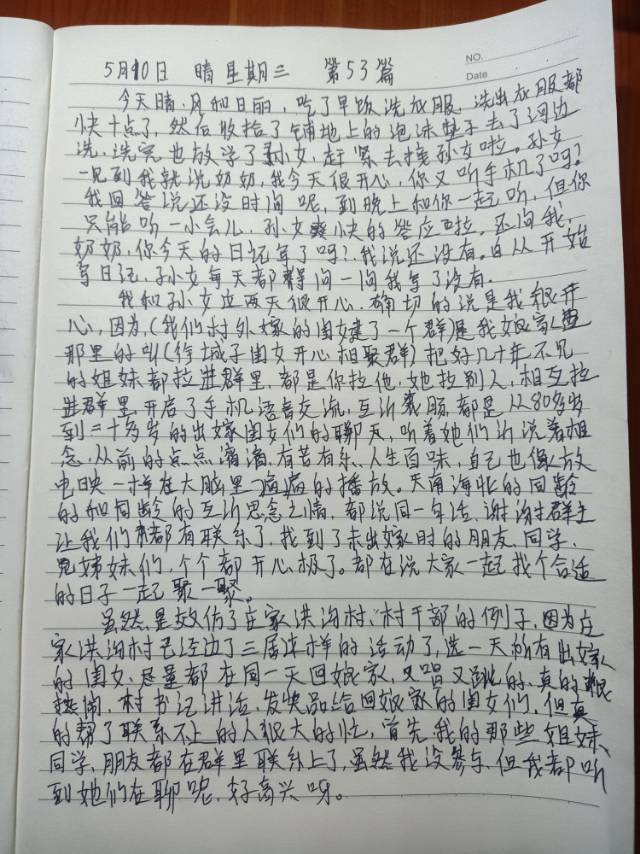 NO.
Date
5月10日 晴 星期三 第53篇
今天晴,风和日丽,吃了早饭洗衣服,洗出衣服都
快十点了,然后收拾了铺地上的泡沫垫子去了河边
洗,洗完也放学了孙女,赶紧去接孙女啦。孙女
一见到我就说奶奶,我今天很开心,你又听手机了吗?
我回答说还没时间呢,到晚上和你一起听,但你
只能听一小会儿,孙女爽快的答应啦。还问我,
奶奶,你今天的日记写了吗?我说还没有。自从开始
写日记,孙女每天都得问一问我写了没有.
我和孙女这两天很开心,确切的说是我很开
心,因为,(我们村外嫁的闺女建了一个群)是我娘家
那里的叫(作城子闺女开心相聚群)把好几十年不见
的姐妹都拉进群里,都是你拉他,她拉别人,相互拉
进群里.开启了手机语音交流,互诉衷肠,都是从80多岁
到二十多岁的出嫁闺女们的聊天,听着她们诉说着相
念,从前的点点滴滴,有苦有乐.人生百味,自己也像放
电映一样在大脑里一遍遍的播放。天南海北的同龄
的和同龄的互诉思念之情,都说同一句话,谢谢群主
让我们都有联系了,找到了未出嫁时的朋友.同学.
兄妹妹们,个个都开心极了。都在说大家一起找个合适
的日子一起聚一聚。
虽然是效仿了庄家洪沟村、村干部的例子,因为庄
家洪沟村已经边了三届这样的活动了,选一天所有出嫁
的闺女,尽量都在同一天回娘家,又唱又跳的,真的很
热闹,村书记讲话,发奖品给回娘家的闺女们,但真
的帮了联系不上的人很大的忙,首先,我的那些姐妹、
同学,朋友都在群里联系上了,虽然我没参与,但我都听
到她们在聊呢,好高兴呀。